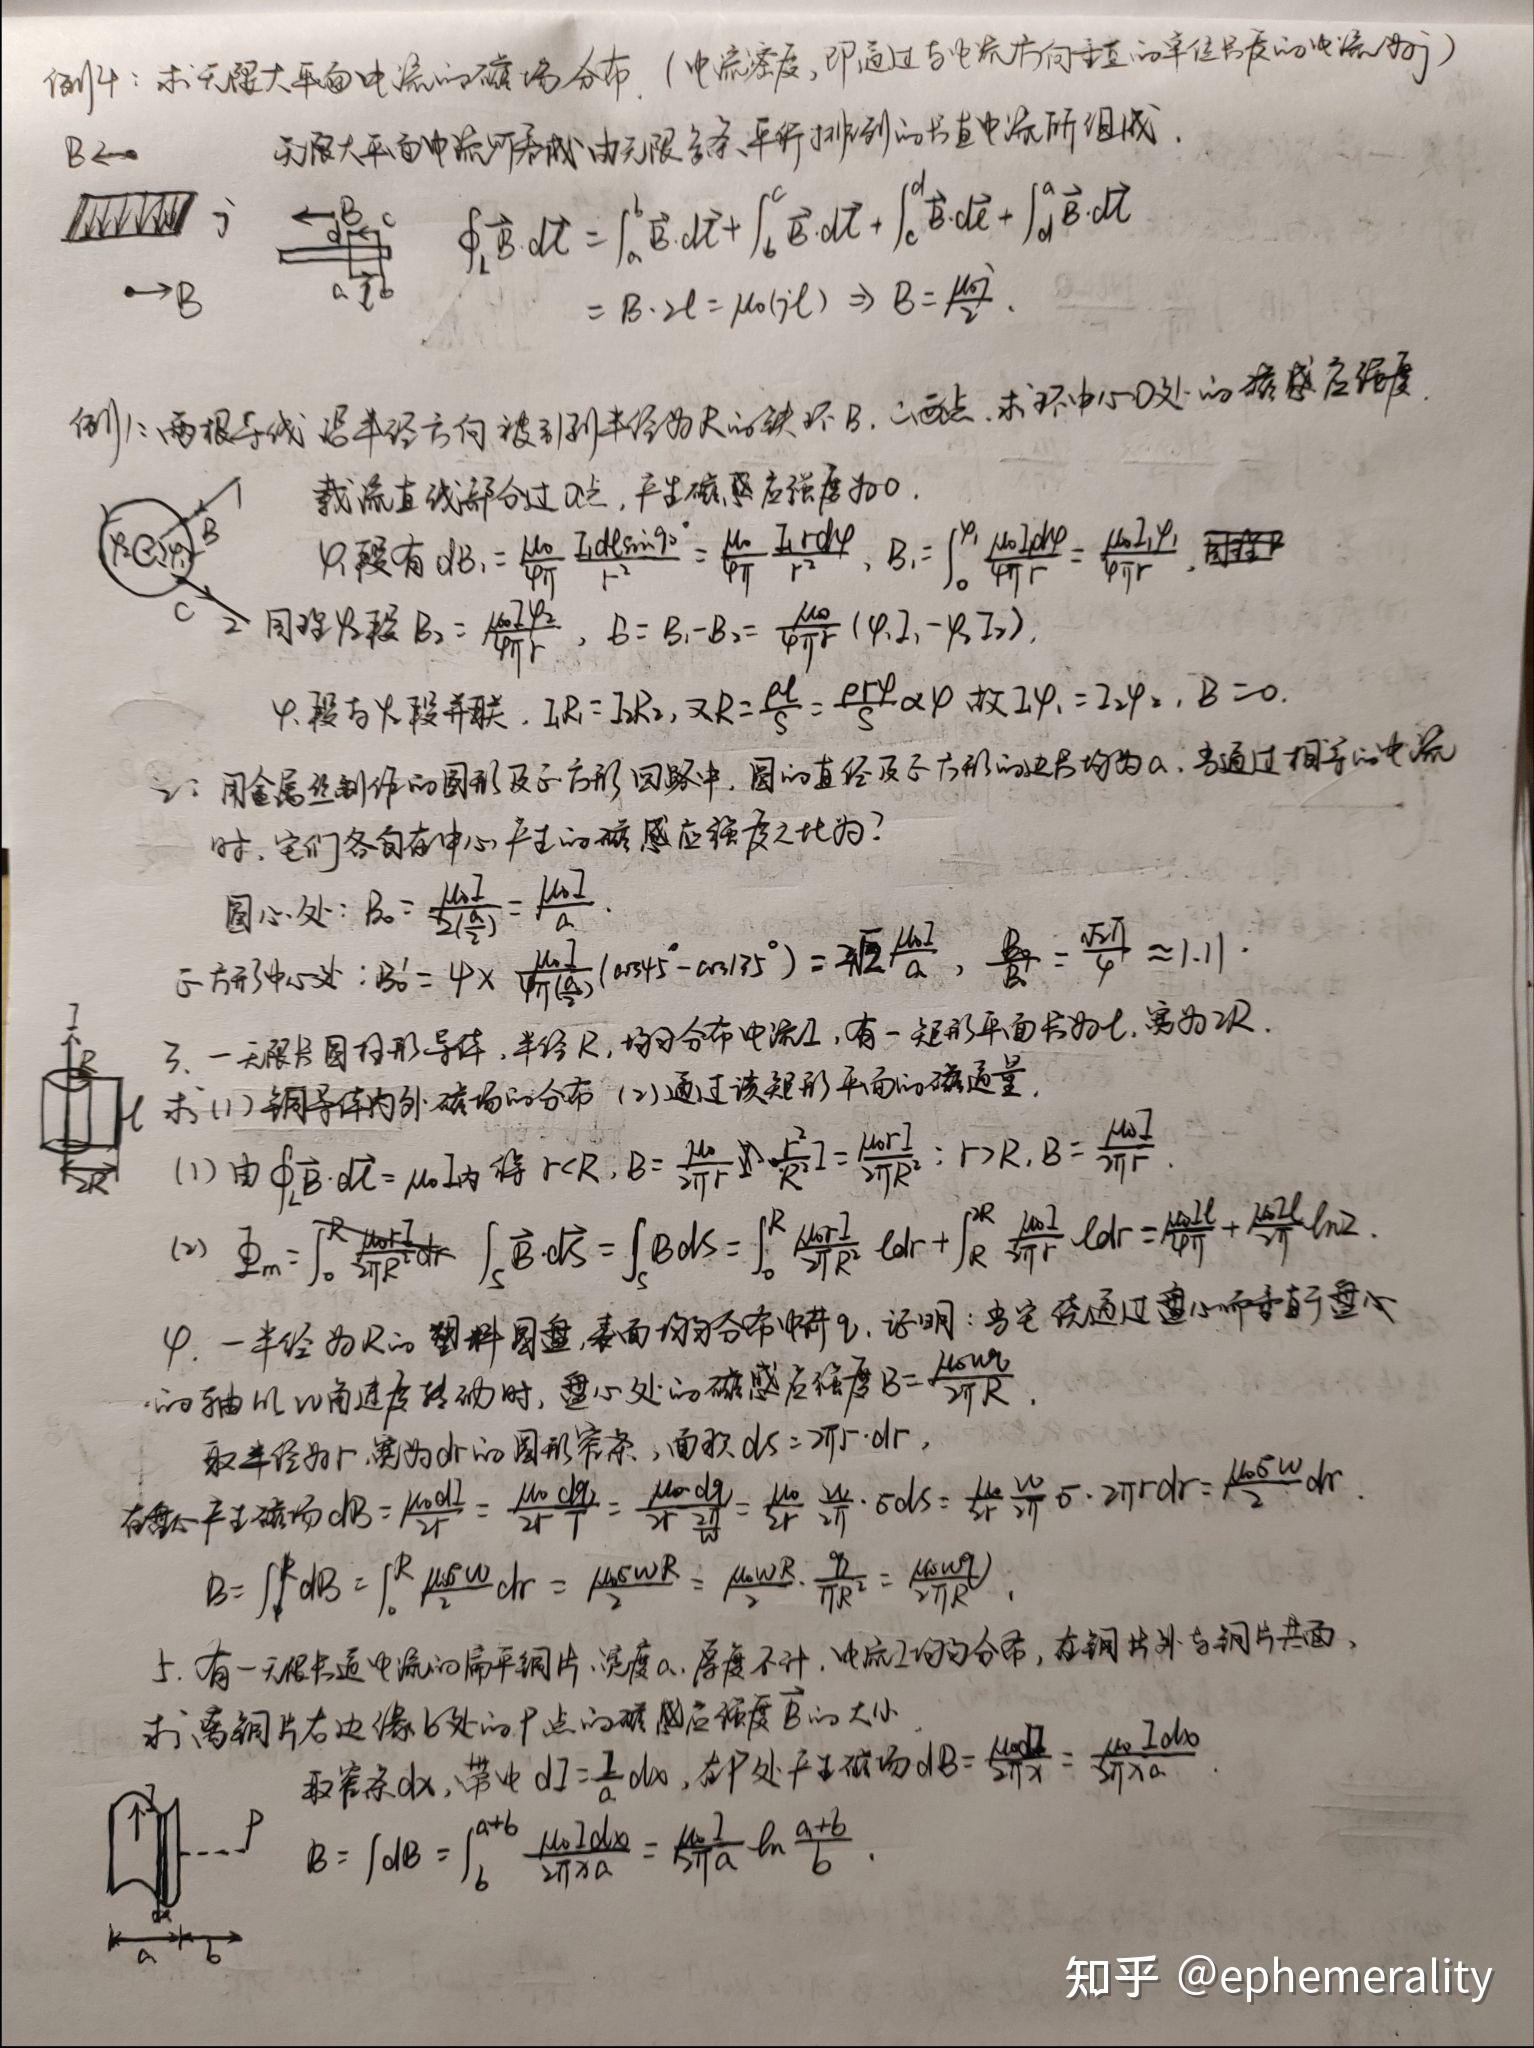 例4：求无限大平面电流的磁场分布.（电流密度,即通过与电流方向垂直的单位长度的电流为j）
B← 无限大平面电流可看成由无限多条平行排列的长直电流所组成.
j B d c ∮_L B⃗·dl⃗ = ∫_a^b B⃗·dl⃗ + ∫_b^c B⃗·dl⃗ + ∫_c^d B⃗·dl⃗ + ∫_d^a B⃗·dl⃗
→B a l b = B·2l = μ₀(jl) ⇒ B = μ₀j/2.
例1：两根导线沿半径方向被引到半径为R的铁环B、C两点.求环中心O处的磁感应强度.
载流直线部分过O点,产生磁感应强度为0.
1 B φ₂ φ₁ φ₁段有 dB₁ = μ₀/4π I₁dl sin90°/r² = μ₀/4π I₁rdφ/r², B₁ = ∫_0^φ₁ μ₀I₁dφ/4πr = μ₀I₁φ₁/4πr.
C 2 同理φ₂段B₂ = μ₀I₂φ₂/4πr, B = B₁-B₂ = μ₀/4πr (φ₁I₁-φ₂I₂).
φ₁段与φ₂段并联. I₁R₁ = I₂R₂, 又R = ρl/S = ρrφ/S ∝ φ 故I₁φ₁ = I₂φ₂, B = 0.
2: 用金属丝制作的圆形及正方形回路中,圆的直径及正方形的边长均为a,当通过相等的电流
时,它们各自在中心产生的磁感应强度之比为?
圆心处: B₀ = μ₀I/2(a/2) = μ₀I/a.
正方形中心处: B₀' = 4× μ₀I/4π(a/2) (cos45°-cos135°) = 2√2 μ₀I/a, = √2π/4 ≈ 1.11.
I R 3、一无限长圆柱形导体,半径R,均匀分布电流I,有一矩形平面长为l,宽为2R.
l 求(1) 铜导体内外磁场的分布 (2)通过该矩形平面的磁通量.
2R (1) 由∮_L B⃗·dl⃗ = μ₀I内 得 r<R, B = μ₀/2πr · r²/R² I = μ₀rI/2πR²; r>R, B = μ₀I/2πr.
(2) Φm = ∫_S B⃗·dS⃗ = ∫_S BdS = ∫_0^R μ₀rI/2πR² ldr + ∫_R^2R μ₀I/2πr ldr = μ₀Il/4π + μ₀Il/2π ln2.
4. 一半径为R的塑料圆盘,表面均匀分布电荷q.证明:当它绕通过盘心而垂直于盘
的轴以ω角速度转动时,盘心处的磁感应强度B = μ₀ωq/2πR.
取半径为r,宽为dr的圆形窄条,面积ds = 2πr·dr,
在盘心产生磁场dB = μ₀dI/2r = μ₀/2r dq/T = μ₀/2r dq/(2π/ω) = μ₀/2r ω/2π · σds = μ₀/2r ω/2π σ·2πrdr = μ₀σω/2 dr.
B = ∫dB = ∫_0^R μ₀σω/2 dr = μ₀σωR/2 = μ₀ωR/2 · q/πR² = μ₀ωq/2πR.
5. 有一无限长通电流的扁平铜片,宽度a,厚度不计,电流I均匀分布,在铜片外与铜片共面,
求离铜片右边缘b处的P点的磁感应强度B⃗的大小.
I P 取窄条dx,带电dI = I/a dx,在P处产生磁场dB = μ₀dI/2πx = μ₀Idx/2πxa.
B = ∫dB = ∫_b^{a+b} μ₀Idx/2πxa = μ₀I/2πa ln (a+b)/b.
dx
a b
知乎 @ephemerality